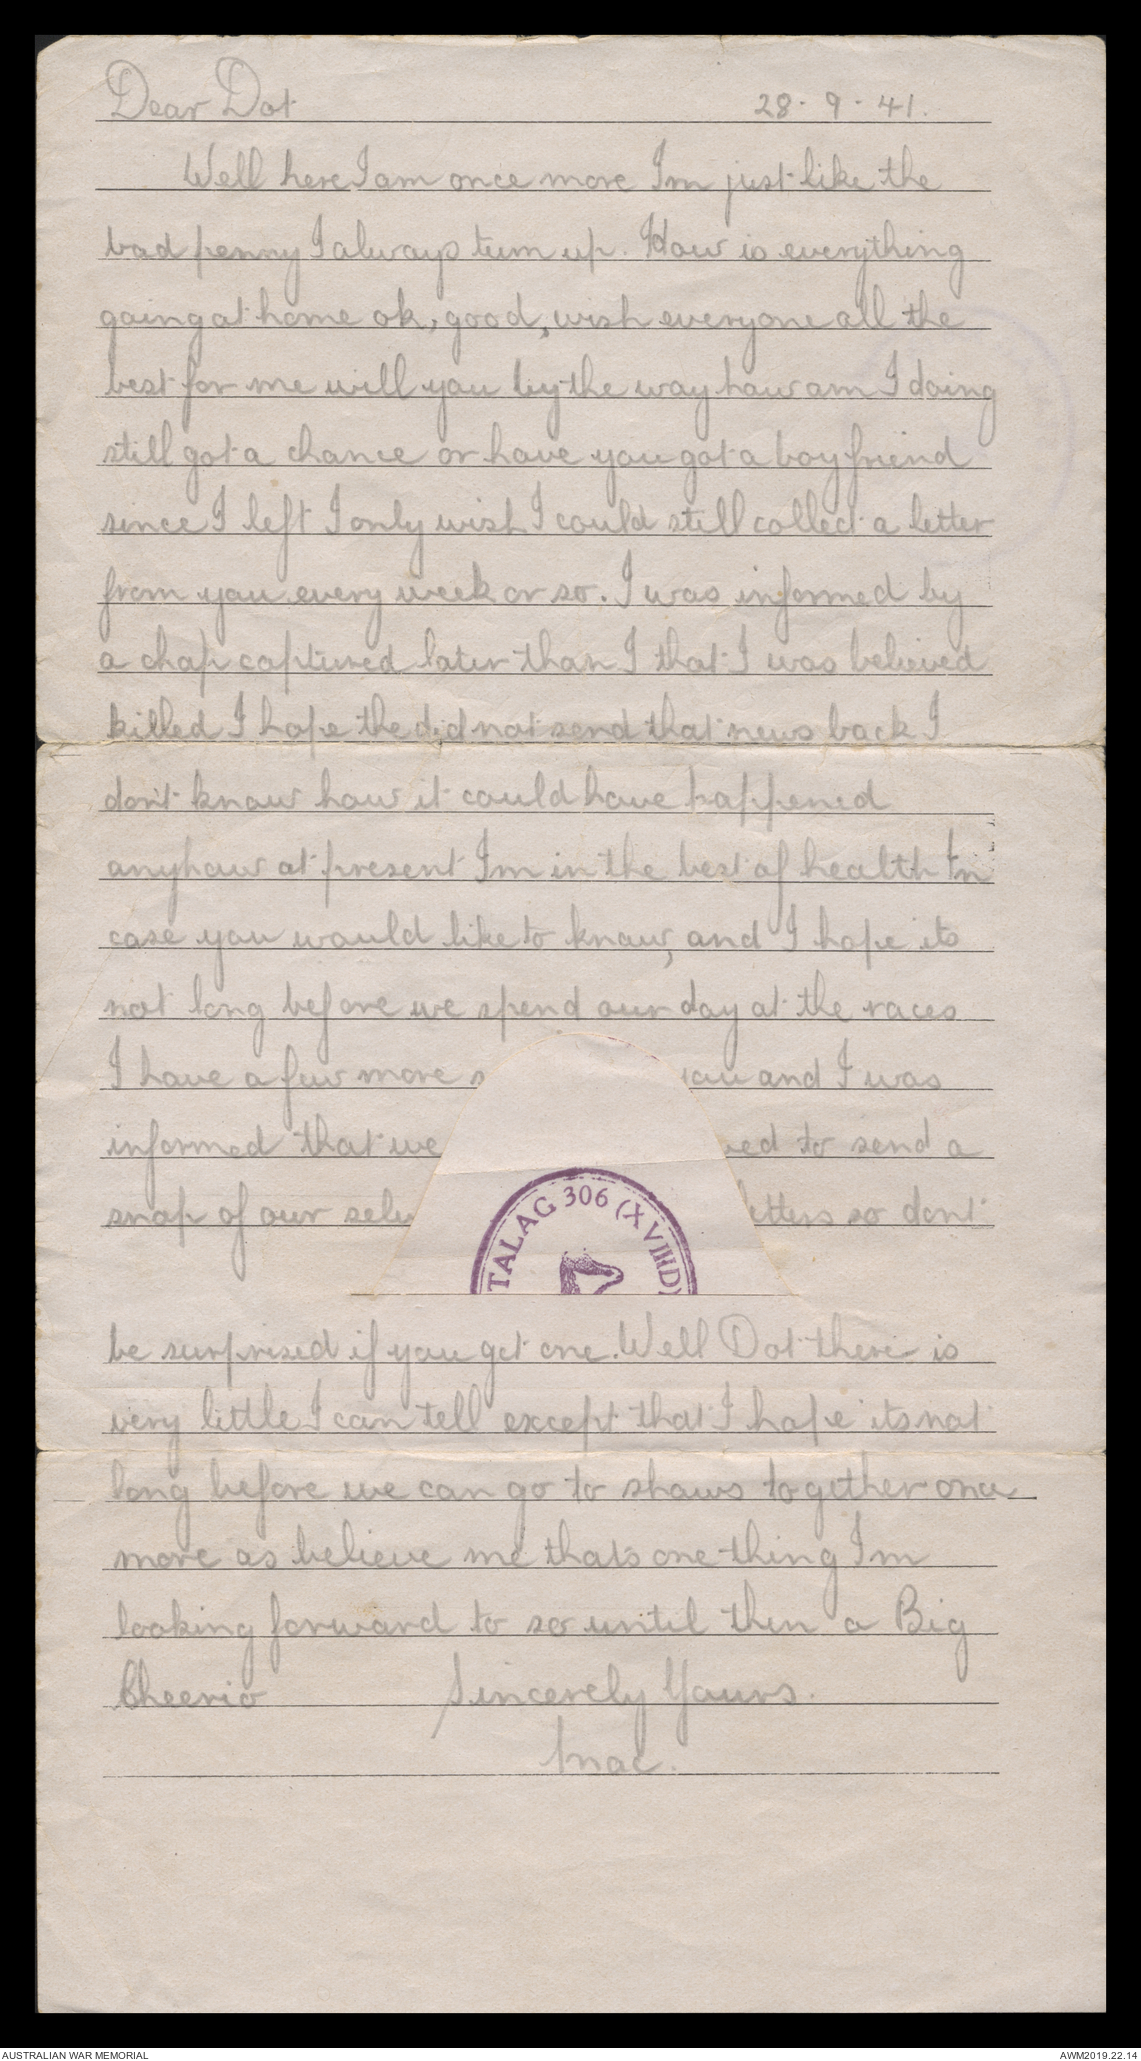 Dear Dot 28 · 9 · 41.
Well here I am once more Im just like the
bad penny I always turn up. How is everything
going at home ok, good, wish everyone all the
best for me will you by the way how am I doing
still got a chance or have you got a boy friend
since I left I only wish I could still collect a letter
from you every week or so. I was informed by
a chap captured later than I that I was believed
killed I hope the did not send that news back I
don't know how it could have happened
anyhow at present Im in the best of health In
case you would like to know, and I hope its
not long before we spend our day at the races
I have a few more you and I was
informed that we to send a
snap of our so dont
TALAG 306 (XVIIID)
be surprised if you get one. Well Dot there is
very little I can tell except that I hope its not
long before we can go to shows together once
more as believe me thats one thing Im
looking forward to so until then a Big
Cheerio Sincerely Yours.
Mac.
AUSTRALIAN WAR MEMORIAL AWM2019.22.14